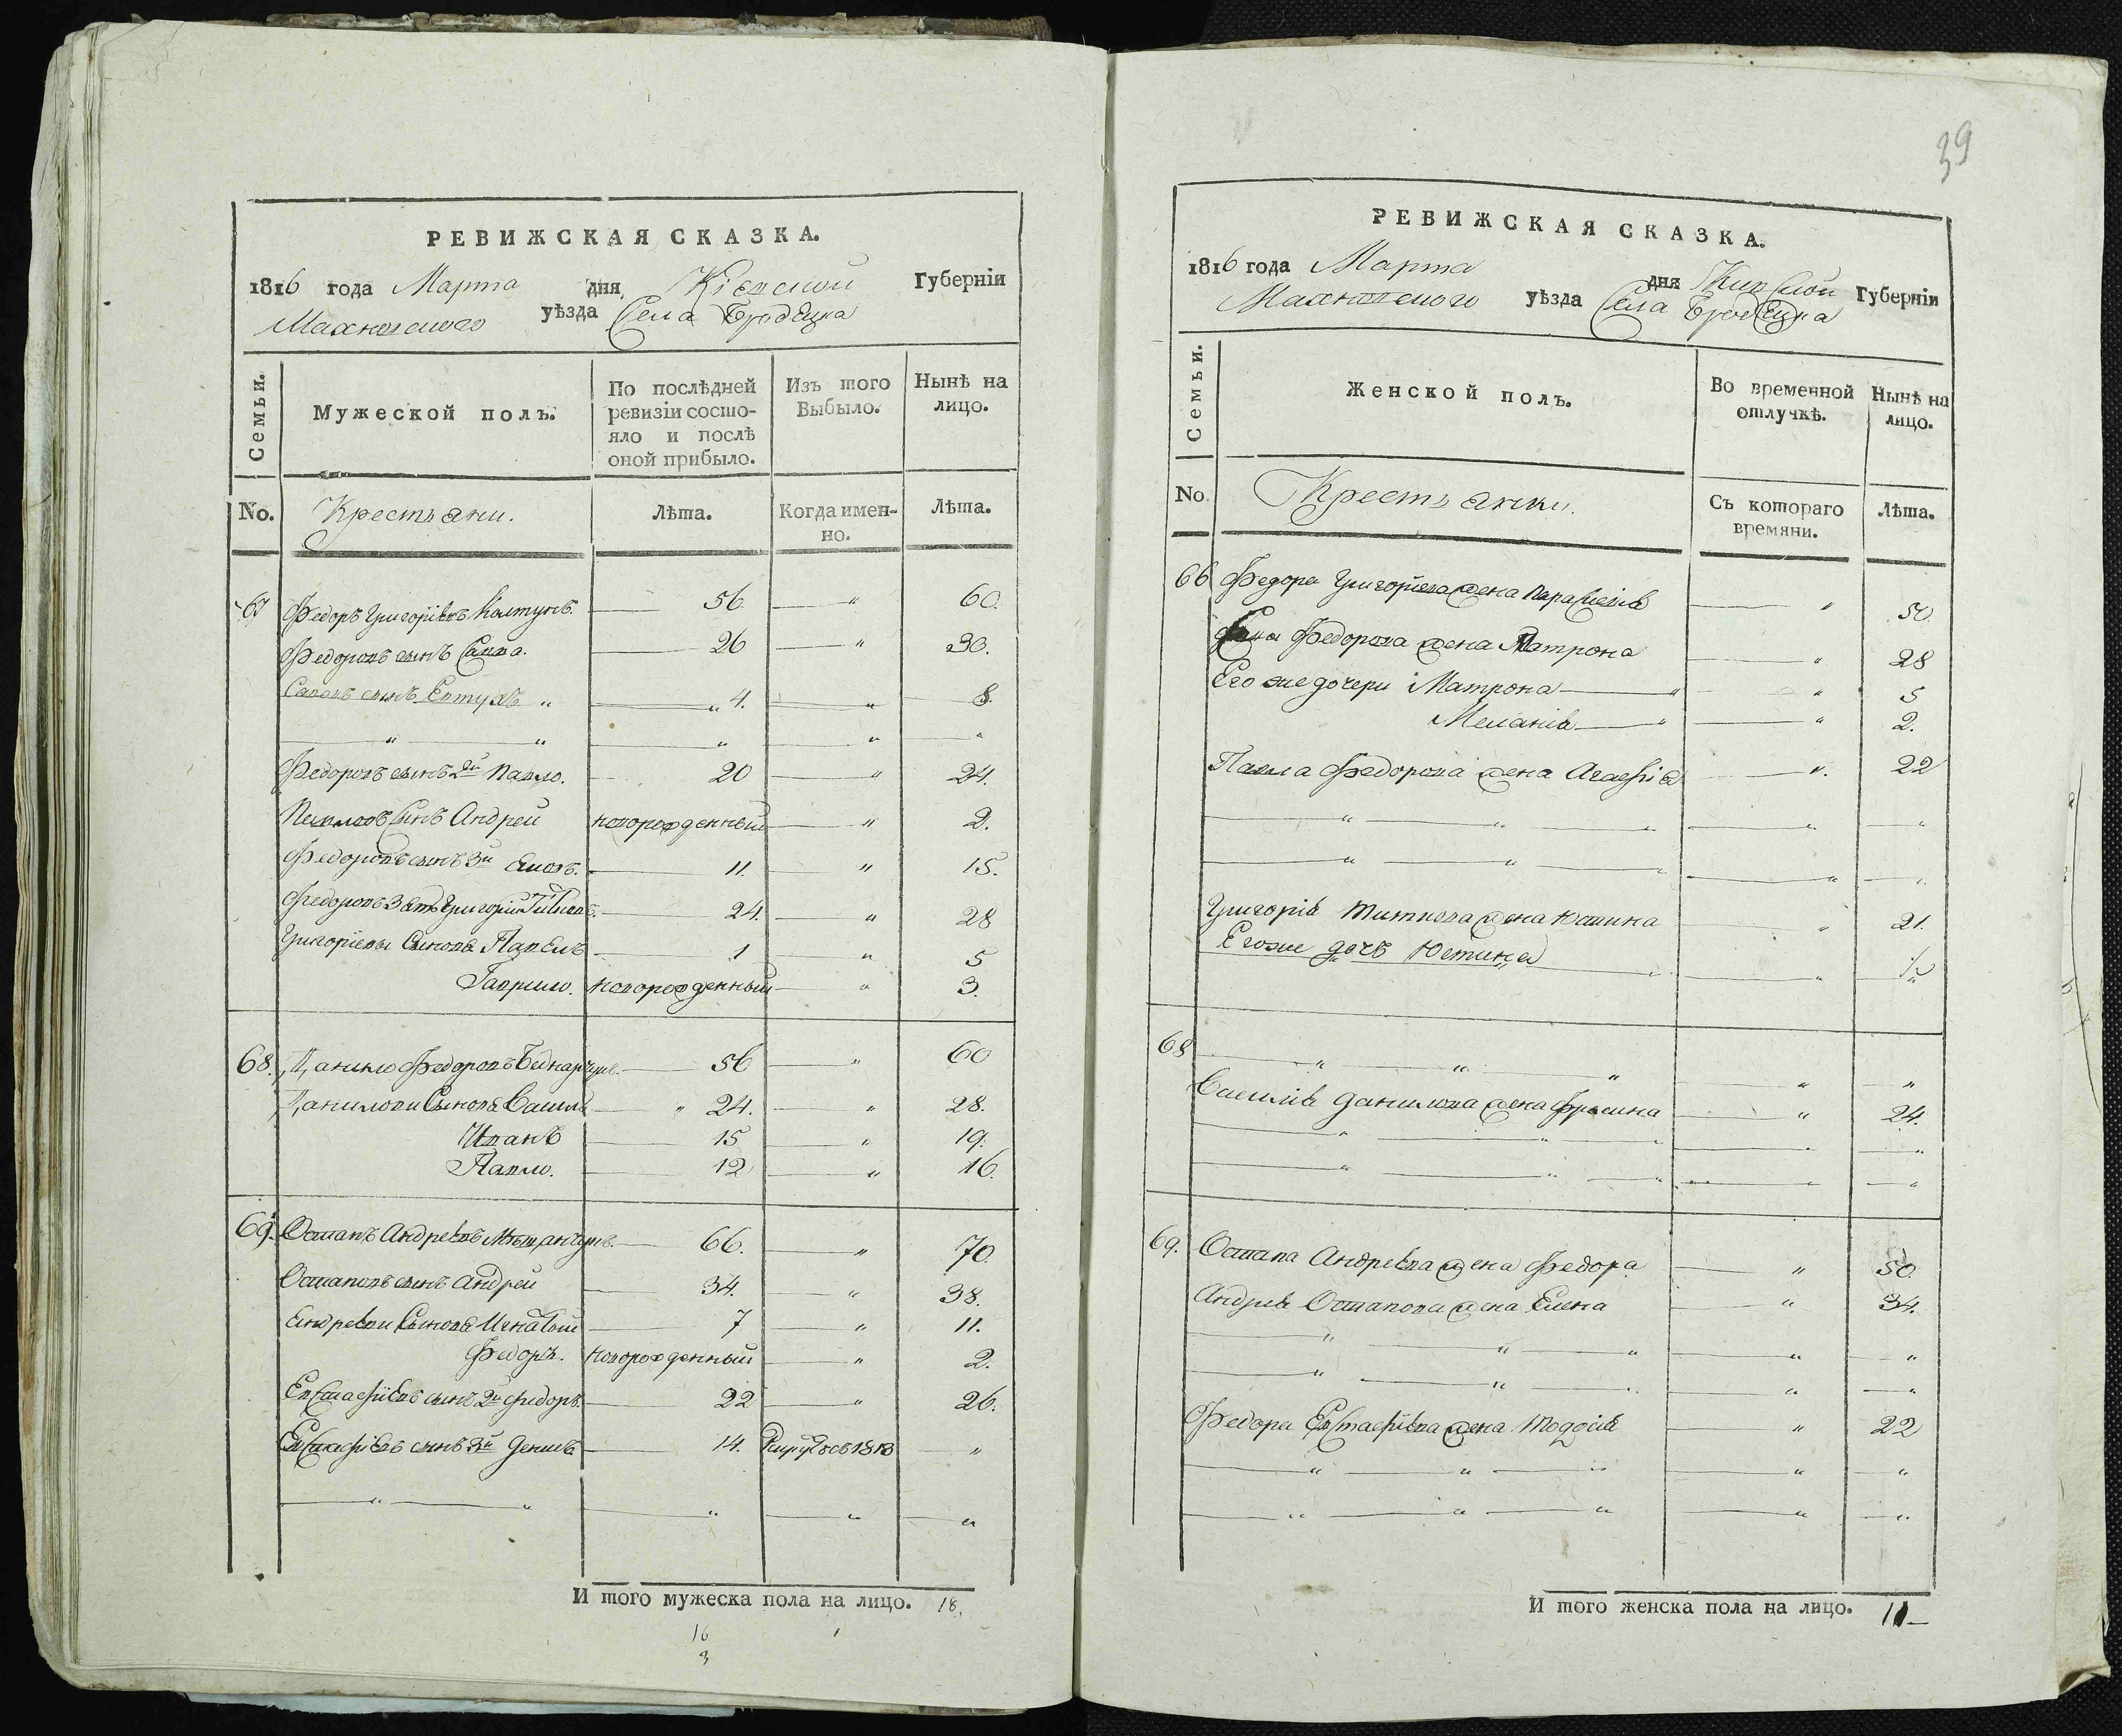 РЕВИЖСКАЯ СКАЗКА.
1816 года Марта дня Кіевской Губерніи
Махновского уѣзда Села Бродецка
Семьи.
Мужеской полъ.
По послѣдней
ревизіи состо-
яло и послѣ
оной прибыло.
Изъ того
Выбыло.
Нынѣ на
лицо.
No.
Крестьяни.
Лѣта.
Когда имен-
но.
Лѣта.
67 Федоръ Григоріевъ Колтунъ. 56 " 60.
Федоровъ сынъ Савва. 26 " 30.
Савовъ сынъ Евтухъ " " 4. " 8.
" " " " "
Федоровъ сынъ 2й Павло. 20 " 24.
Павловъ Сынъ Андрей новорожденный " 2.
Федоровъ сынъ 3й 11. " 15.
Федоровъ Зять Григорій 24. " 28
Григоріевы Сыновя Павелъ 1 " 5
Гаврило. новорожденный " 3.
68. Данило Федоровъ Беднарчукъ. 56 " 60
Данилови Сыновя Василь " 24. " 28.
Иванъ 15 " 19.
Павло. 12 " 16.
69. Остапъ Андреевъ 66. " 70.
Остаповъ сынъ Андрей 34. " 38.
Андрееви Сыновя Игнатый 7 " 11.
Федоръ. новорожденный " 2.
Евстафіевъ сынъ 2й Федоръ. 22 " 26.
Евстафіевъ сынъ 3й Денисъ 14. 1813 "
" " " " "
И того мужеска пола на лицо. 18.
16
3
39
РЕВИЖСКАЯ СКАЗКА.
1816 года Марта дня Киевской Губерніи
Махновского уѣзда Села Бродецка
Семьи.
Женской полъ.
Во временной
отлучкѣ.
Нынѣ на
лицо.
No.
Крестьянки.
Съ котораго
времяни.
Лѣта.
66 Федора Григоріева жена Параскевія " 50
Федорова жена Матрона " 28
Его же дочери Матрона " " 5
Меланія " " 2.
Павла Федорова жена Агафія ". 22
" " " " "
" " " " "
Григорія Титкова жена Юстина " 21.
Егоже дочъ Юстина " "
68 " " " " "
Василія Данилова жена Фросина " 24.
" " " " "
" " " " "
69. Остапа Андреева жена Федора " 50.
Андрея Остапова жена Елена " 34.
" " " " "
" " " " "
Федора Евстафіева жена Тодосія " 22
" " " " "
" " " " "
И того женска пола на лицо. 11